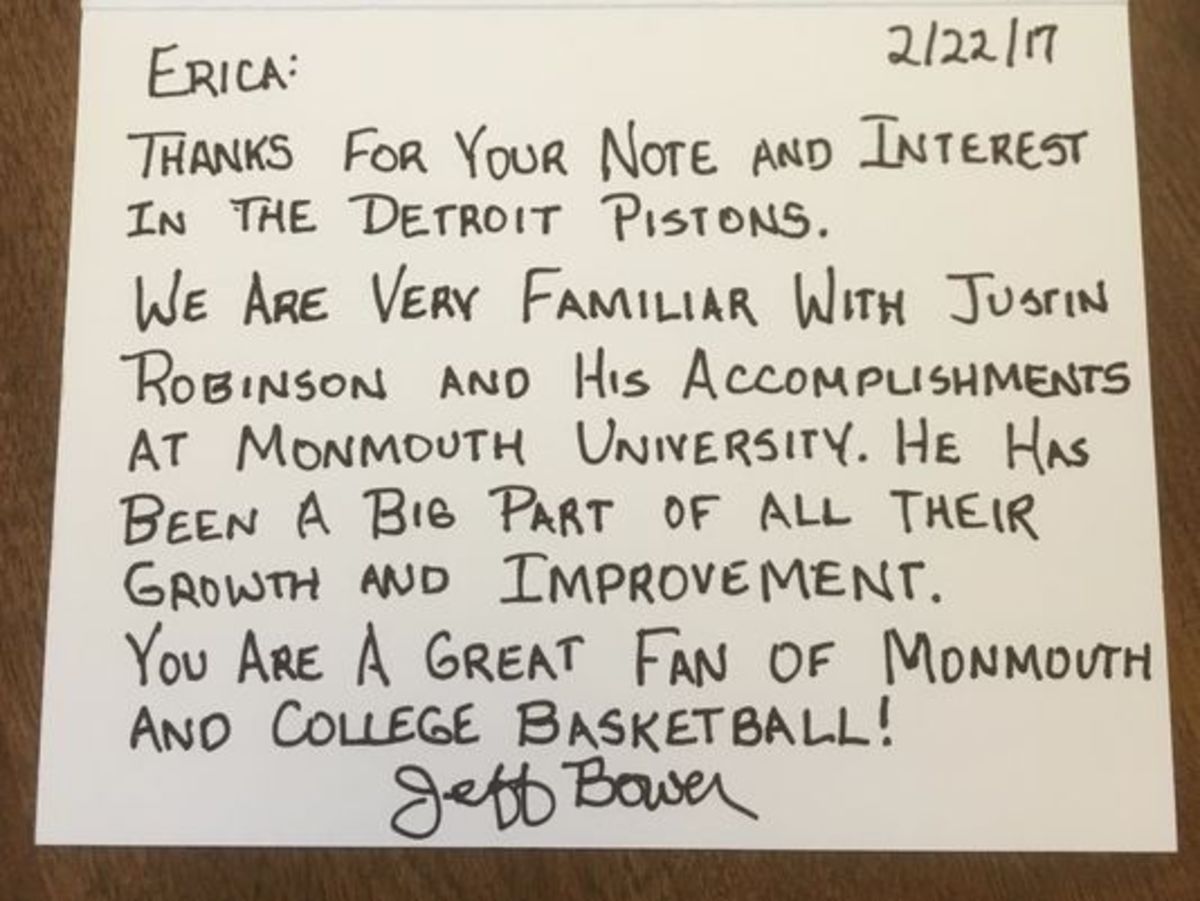 ERICA: 2/22/17
THANKS FOR YOUR NOTE AND INTEREST
IN THE DETROIT PISTONS.
WE ARE VERY FAMILIAR WITH JUSTIN
ROBINSON AND HIS ACCOMPLISHMENTS
AT MONMOUTH UNIVERSITY. HE HAS
BEEN A BIG PART OF ALL THEIR
GROWTH AND IMPROVEMENT.
YOU ARE A GREAT FAN OF MONMOUTH
AND COLLEGE BASKETBALL!
Jeff Bower